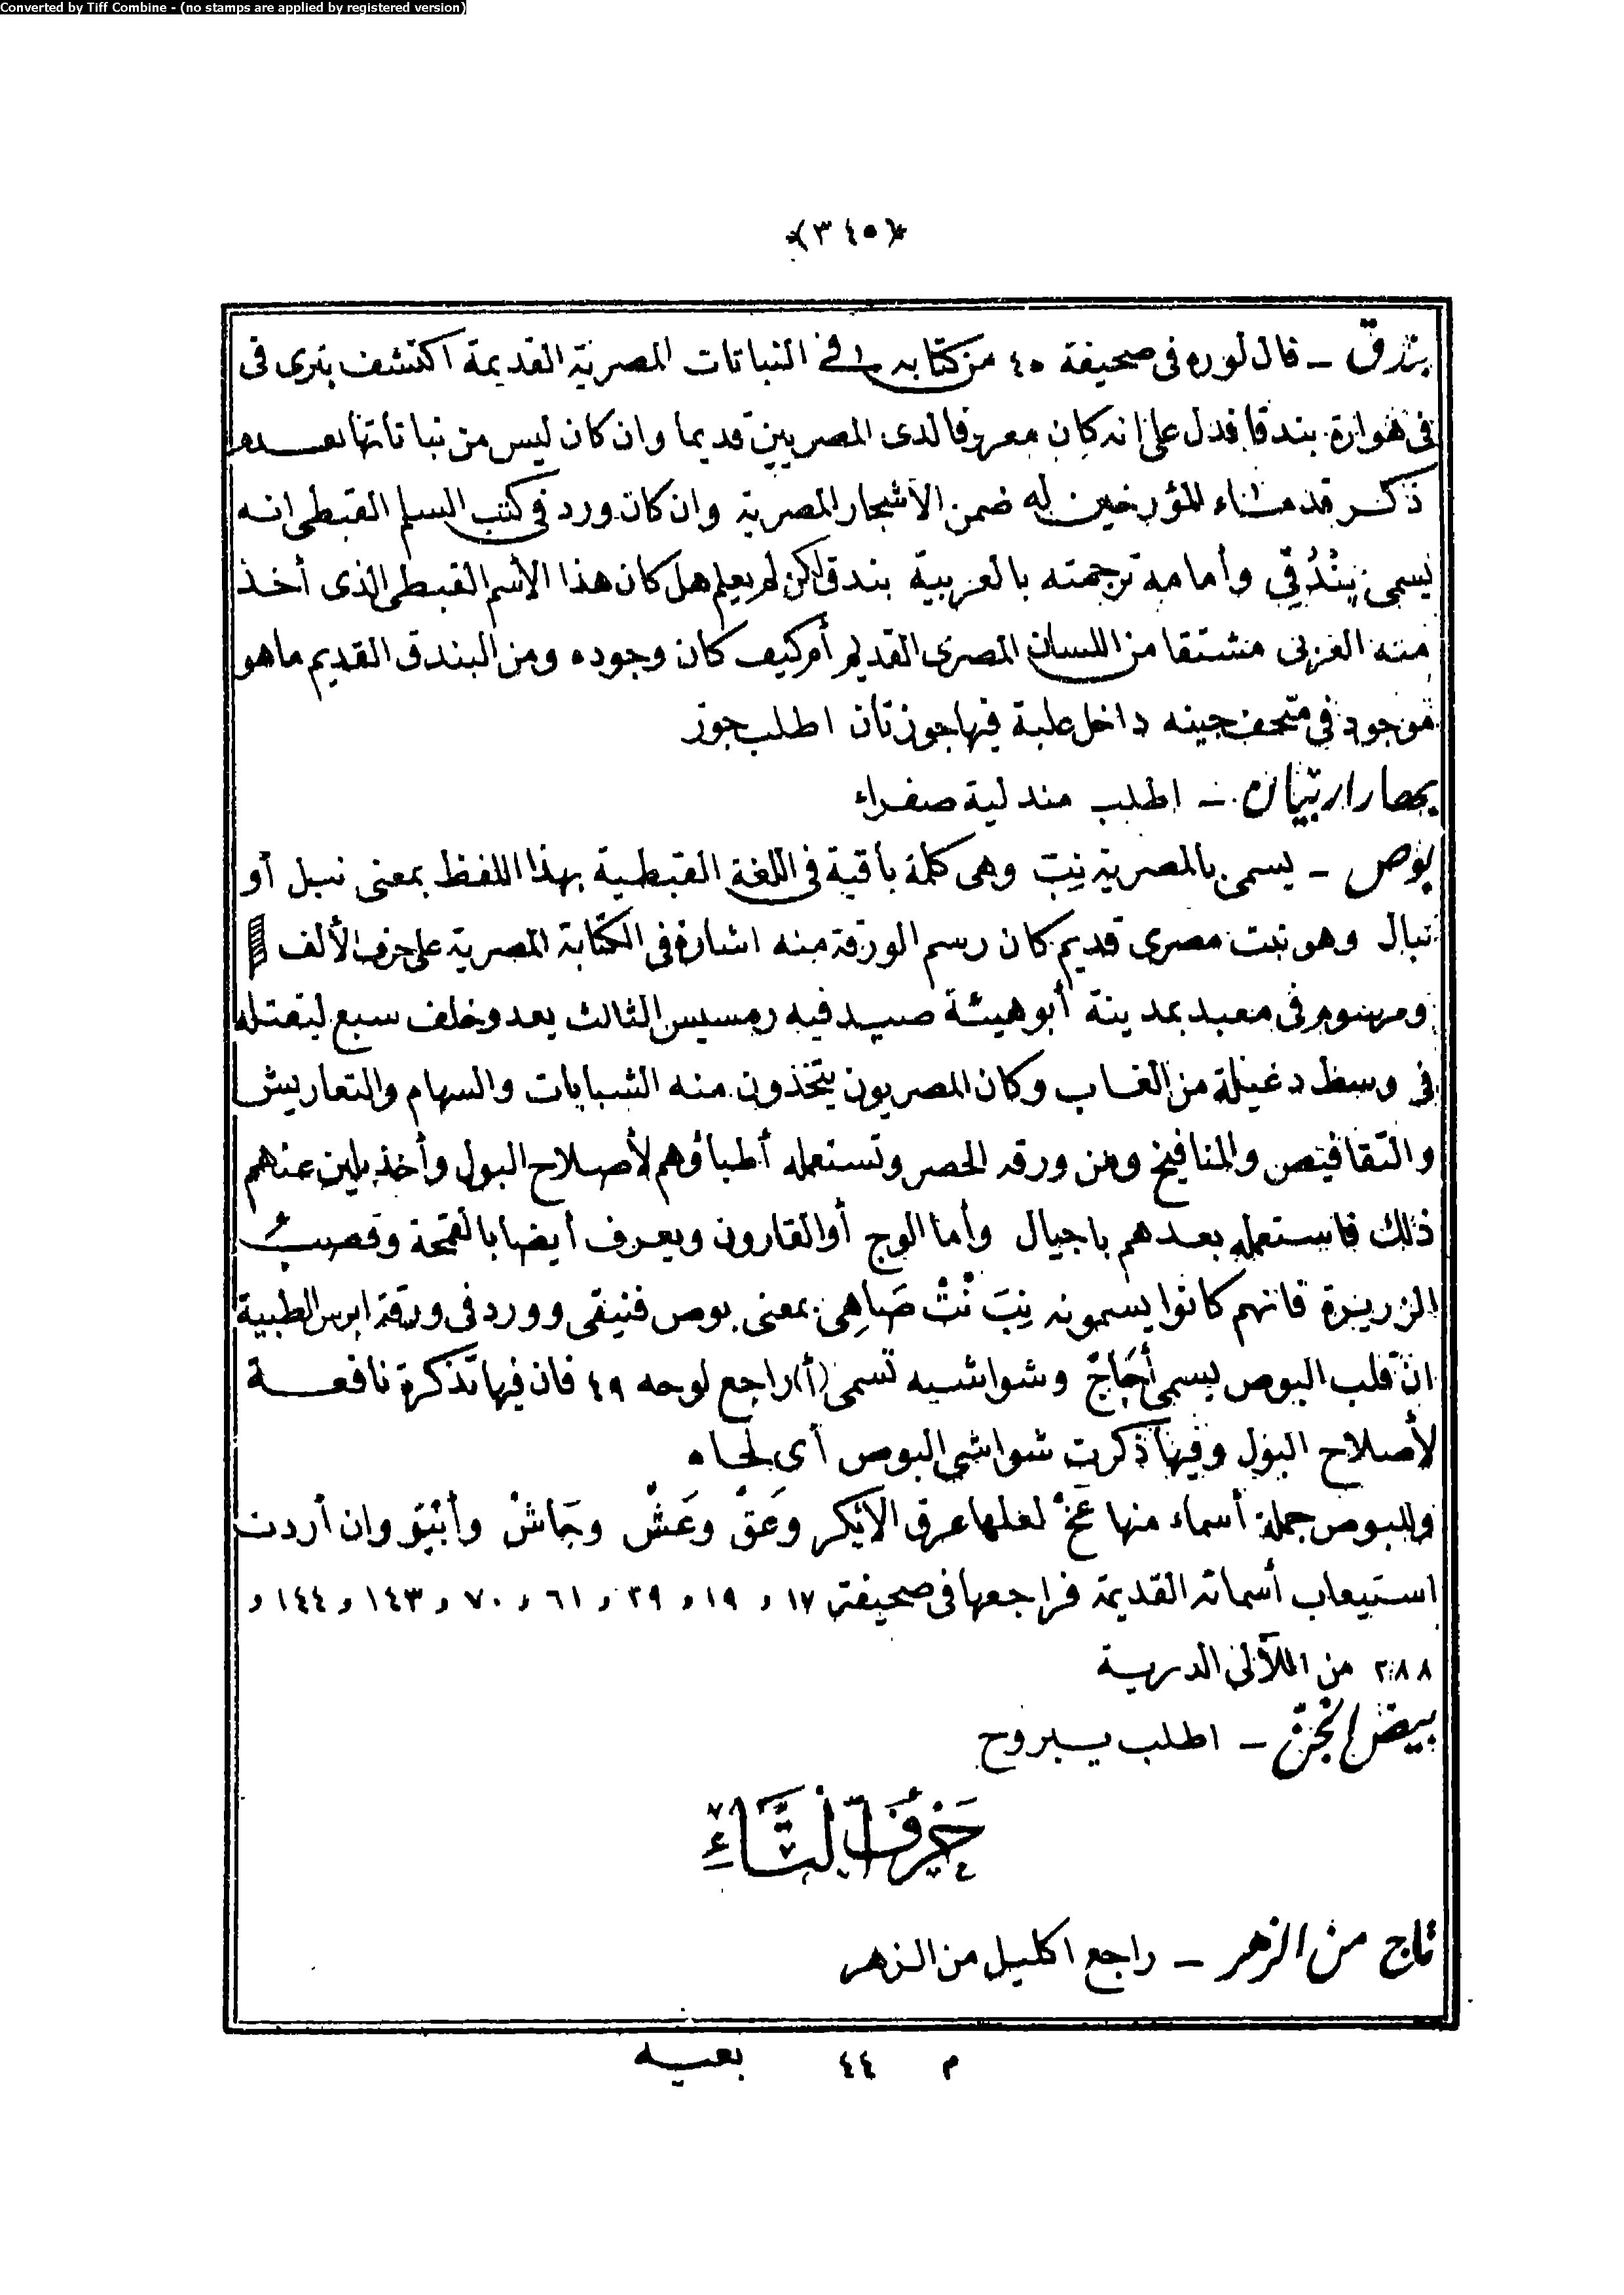 Converted by Tiff Combine - (no stamps are applied by registered version)
﴿٣٤٥﴾
بندق ــ قال لوره فى صحيفة ٤٥ من كتابه فى النباتات المصرية القديمة اكتشف بترى فى
فى هوارة بندقا فدل على انه كان معروفا لدى المصريين قديما وان كان ليس من نباتاتها لعدم
ذكر قدماء المؤرخين له ضمن الأشجار المصرية وان كان ورد فى كتب السلم القبطى انه
يسمى بِنْدُقِى وأمامه ترجمته بالعربية بندق لكن لم يعلم هل كان هذا الأسم القبطى الذى أخذ
منه العربى مشتقا من اللسان المصرى القديم أم كيف كان وجوده ومن البندق القديم ماهو
موجود فى متحف جيزه داخل علبة فيها جوزتان اطلب جوز
بهار اربيان ــ اطلب مندلية صفراء
بوص ــ يسمى بالمصرية نِبِتْ وهى كلمة باقية فى اللغة القبطية بهذا اللفظ بمعنى نبل أو
نبال وهو نبت مصرى قديم كان رسم الورقة منه اشارة فى الكتابة المصرية على حرف الألف
ومرسوم فى معبد بمدينة أبو هيئة صيد فيه رمسيس الثالث يعدو خلف سبع ليقتله
فى وسط دغيلة من الغاب وكان المصريون يتخذون منه الشبابات والسهام والتعاريش
والتقافيص والمنافيخ ومن ورقه الحصر وتستعمله أطباؤهم لأصلاح البول وأخذ بلين عنهم
ذلك فاستعمله بعدهم باجيال وأما الوج أو القارون ويعرف أيضا بالقمحة وقصب
الزريرة فانهم كانوا يسمونه نِبِتْ نْتْ صَاهِى بمعنى بوص فنيقى وورد فى ورقة ابرس الطبية
انّ قلب البوص يسمى أَجَاجْ وشواشيه تسمى (أ) راجع لوحه ٤٩ فان فيها تذكرة نافعة
لأصلاح البول وفيها ذكرت شواشى البوص أى لحاه
وللبوص جملة أسماء منها عَخْ لعلها عرق الأيكر وعَقْ وعَشْ وجَاشْ وأَنْبُو وان أردت
استيعاب أسمائه القديمة فراجعها فى صحيفة ١٧ و ١٩ و ٣٩ و ٦١ و ٧٠ و ١٤٣ و ١٤٤ و
٢٨٨ من اللآلئ الدرية
بيض الجن ــ اطلب يبروح
حَرْفُ التَّاءِ
تاج من الزهر ــ راجع اكليل من الزهر
م ٤٤ بعيه